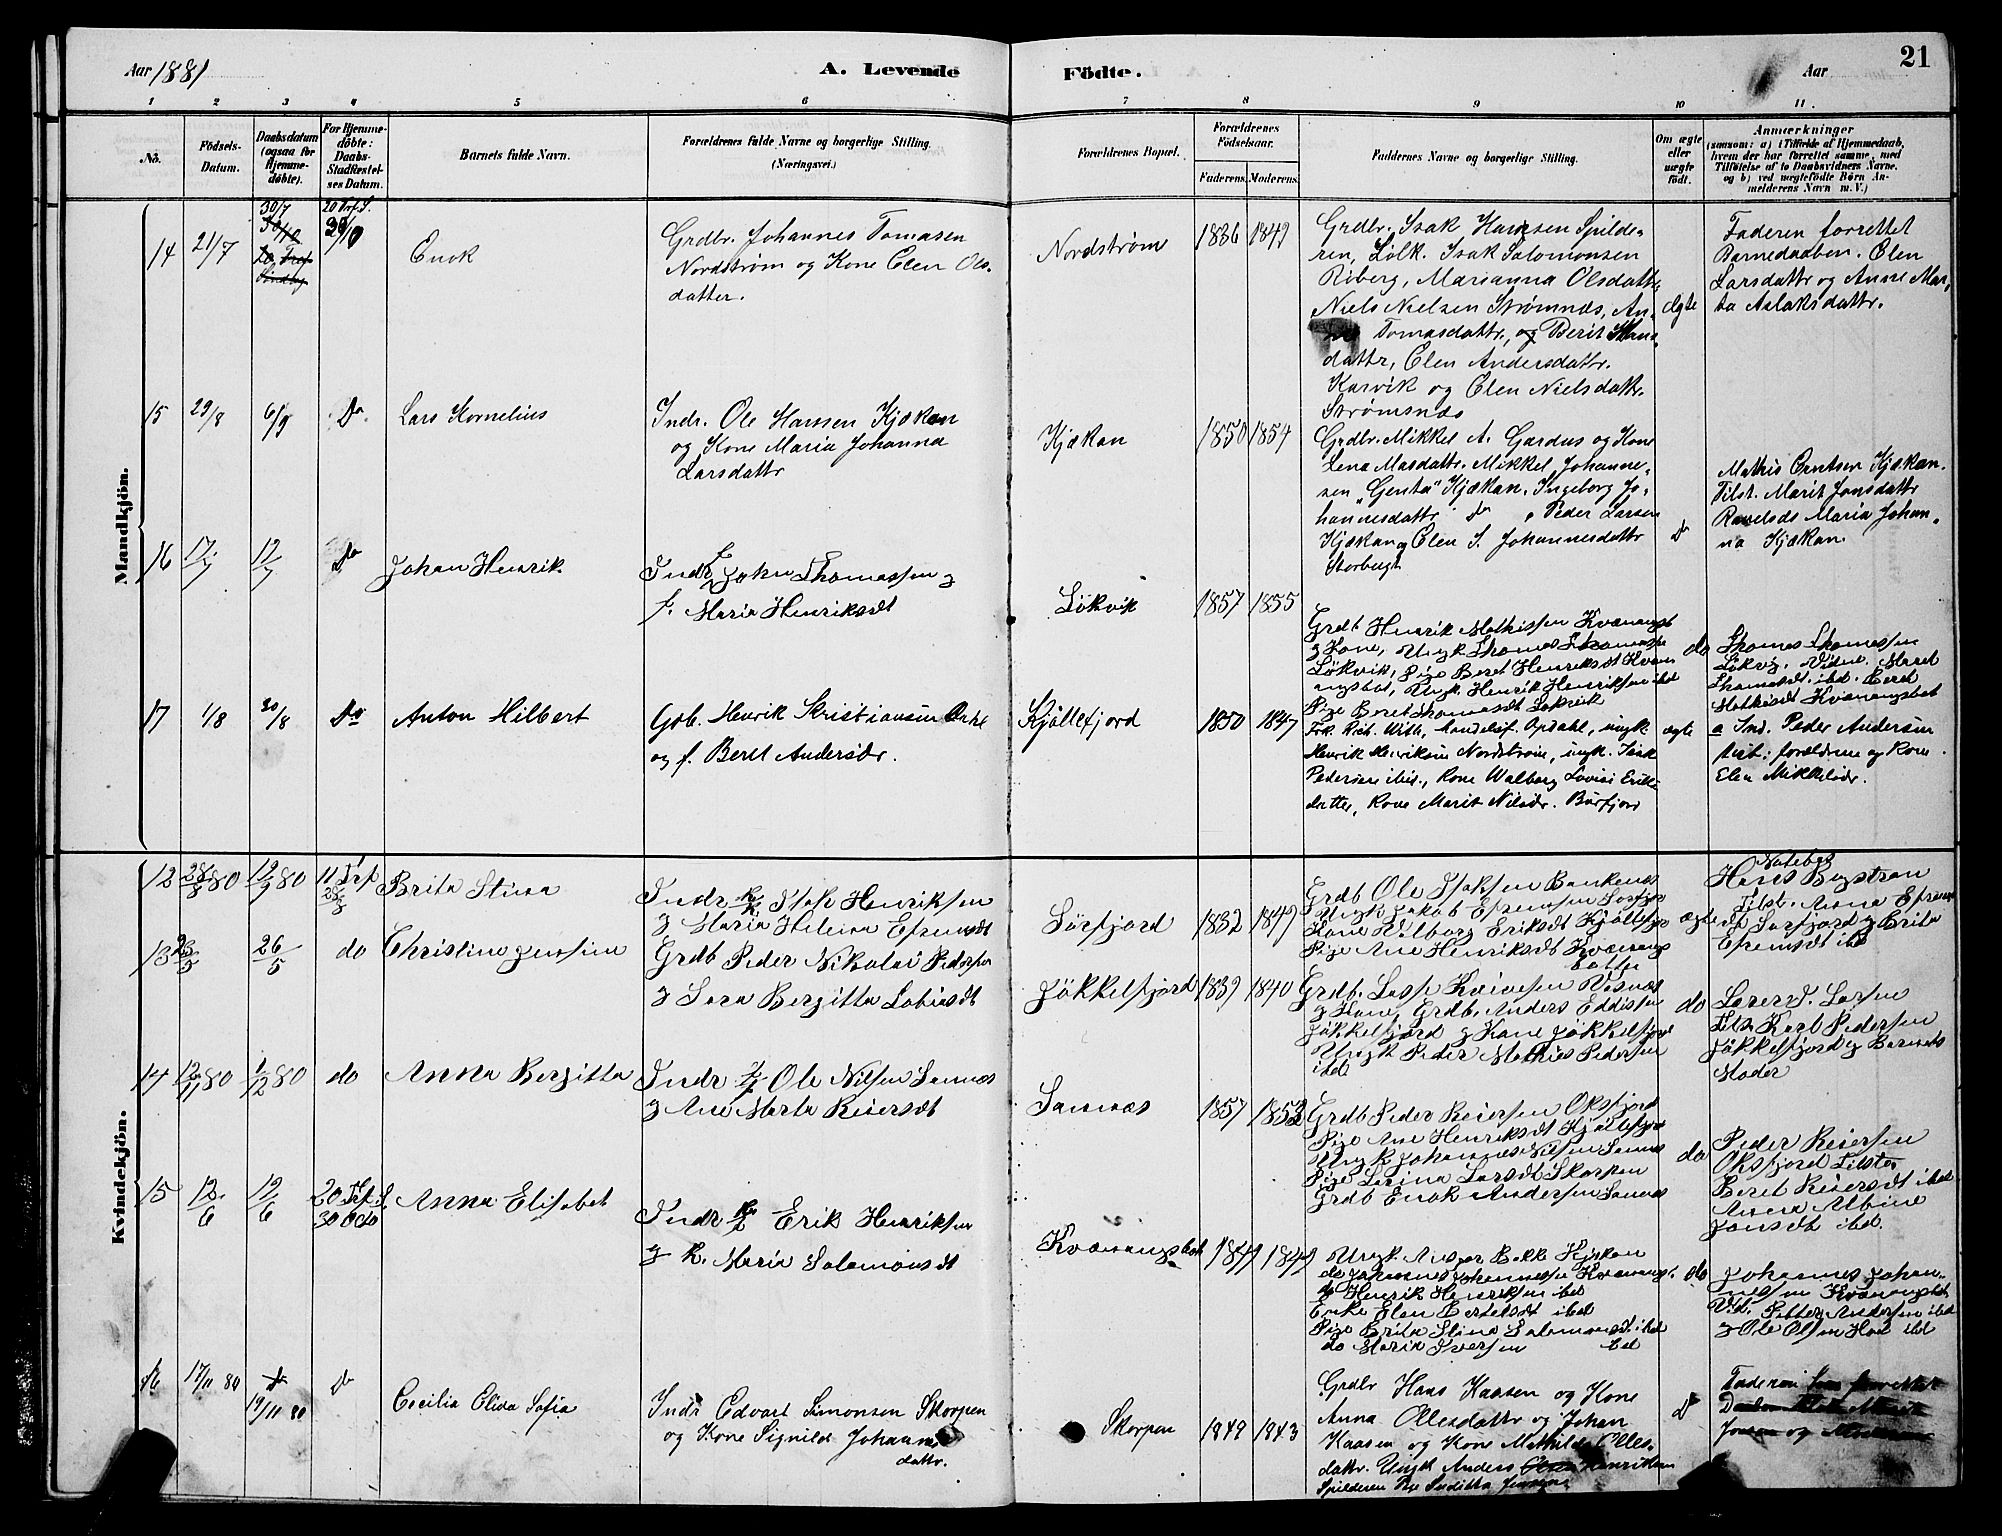 Aar 1881
A. Levende
Födte.
Aar
21
1 2 3 4 5 6 7 8 9 10 11.
No.
Födsels-
Datum.
Daabsdatum
(ogsaa for
Hjemme-
döbte).
For Hjemme-
döbte:
Daabs-
Stadfæstel-
ses Datum.
Barnets fulde Navn.
Forældrenes fulde Navne og borgerlige Stilling.
(Næringsvei.)
Forældrenes Bopæl.
Forældrenes
Födselsaar.
Faderens.
Moderens.
Faddernes Navne og borgerlige Stilling.
Om ægte
eller
uægte
födt.
Anmærkninger
(saasom: a) i Tilfælde af Hjemmedaab,
hvem der har forrettet samme, med
Tilföielse af to Daabsvidners Navne,
og b) ved uægtefödte Börn An-
melderens Navn m. V.)
Mandkjön.
14
21/7
30/7
Enok
Grdbr. Johannes Tomasen
Nordstrøm og Kone Elen Ols-
datter.
Nordstrøm
1836
1849
Grdbr. Isak Hansen Spilde-
ren, Isak Salomonsen
Røberg, Marianna Olsdattr,
Niels Nielsen Strømnæs, An-
Tomasdattr., og Berit
dattr, Elen Andersdattr.
Karvik og Elen Nielsdattr.
Strømsnæs
ægte
Faderen forrettet
Barnedaaben. Elen
Larsdattr og Anne Mar-
ta Aslaksdattr.
15
29/8
6/9
Do
Lars Kornelius
Indr. Ole Hansen Kjækan
og Kone Maria Johanna
Larsdattr
Kjækan
1850
1854
Grdbr. Mikkel A. Gardus og Kone
Lena Masdattr. Mikkel Johanne-
sen "Genta" Kjækan. Ingeborg Jo-
hannesdattr do, Peder Larsen
Kjækan og Elen S. Johannesdattr
Storbugt
Do
Mathis Arntsen Kjækan.
Tilst. Marit Jonsdattr
Maria Johan-
na Kjækan.
16
17/7
17/7
Do
Johan Henrik
Indr John Thomassen g
f. Maria Henriksdt
Løkvik
1857
1855
Grdb Henrik Mathissen Kvænangsb
g Kone, Ungk Thomas Thomassen
Løkvik, Pige Beret Henriksdt Kvæn
angsbot, Ungk Henrik Henriksen ibd
Pige Beret Thomasdt Løkvik
do
Thomas Thomassen
Løkvig. Vidne. Maret
Thomasdt ibd. Beret
Mathisdt Kvænangsbot
17
1/8
30/8
Do
Anton Hilbert
Gbr. Henrik Kristiansen
og f. Beret Andersdr.
Kjøllefjord
1850
1847
Frk. Rich. With, Handelsf. Opdahl, ungk.
Henrik Henriksen Nordstrøm, ungk. Isak
Pedersen ibid., Kone Walborg Lovise Eriks
datter, Kone Marit Nilsdr. Burfjord
ægte
a Ind. Peder Andersen
forældrene og Kone
Elen Mikkelsdr.
Kvindekjön.
12
28/8 80
19/9 80
Brita Stina
Indr Isak Henriksen
g Maria Helena Efremsdt
Sørfjord
1832
1847
Grdb Ole Isaksen Bankenæs
Ungk Jakob Efremsen Sørfjor
Kone Vilborg Eriksdt Kjøllefjor
Pige Ane Henriksdt Kvænangs
botten
ægte
Hans Bystrøm
Tilst. Anna Efrem
dt Sørfjord g Brita
Efremsdt ibd
13
23/5
26/5
do
Christine Jensine
Grdb Peder Nikolai Pedersen
g Sara Bergitta Tobiasdt
Jøkkelfjord
1839
1840
Grdb. Lasse Iversen Alsnæs
g Kone, Grdb. Anders Eddissen
Jøkkelfjord g Kone Jøkkelfjord
Ungk Peder Mathias Pedersen
ibd
do
Larsen
Tilst. Karl Pedersen
Jøkkelfjord g Barnets
Moder
14
12/11 80
1/12 80
do
Anna Bergitta
Indr Ole Nilsen Sannæs
g Ane Marta Reiersdt
Sannæs
1857
1853
Grdb Peder Reiersen Oksfjord
Pige Ane Henriksdt Kjøllefjord
Ungk Johannes Nilsen Sannæs
Pige Serina Larsdt Skorpen
Grdb Enok Andersen Sannæs
do
Peder Reiersen
Oksfjord Tilste
Beret Reiersdt ibd
Anna Albine
Jonsdt ibd.
15
12/6
19/6
Anna Elisabet
Indr Erik Henriksen
g k. Maria Salamonsdt
Kvænangsbot
1849
1849
Ungk. Anders Bakke Kjækan
do Johannes Johannessen Kvænangsb.
g Henrik Henriksen ibd
Enke Elen Bertelsdt ibd
Pige Brita Stina Salamonsdt ibd
do Maria Iversen ibd
do
Johannes Johan-
nessen Kvænangsbot
Vid. Petter Andersen ibd
g Ole Olsen Hoel ibd
16
17/11 80
19/11 80
Do
Cecilia Elida Sofia
Indr Edvart Simonsen Skorpen
og Kone Signild Johanns
dattr.
Skorpen
1849
1843
Grdbr Hans Kaasen og Kone
Anna Ollesdattr og Johan
Kaasen og Kone Mathilde Olles-
dattr. Ungk Anders Henriksen
Spilderen Pige Juditta Jensen
Do
Faderen har forrettet